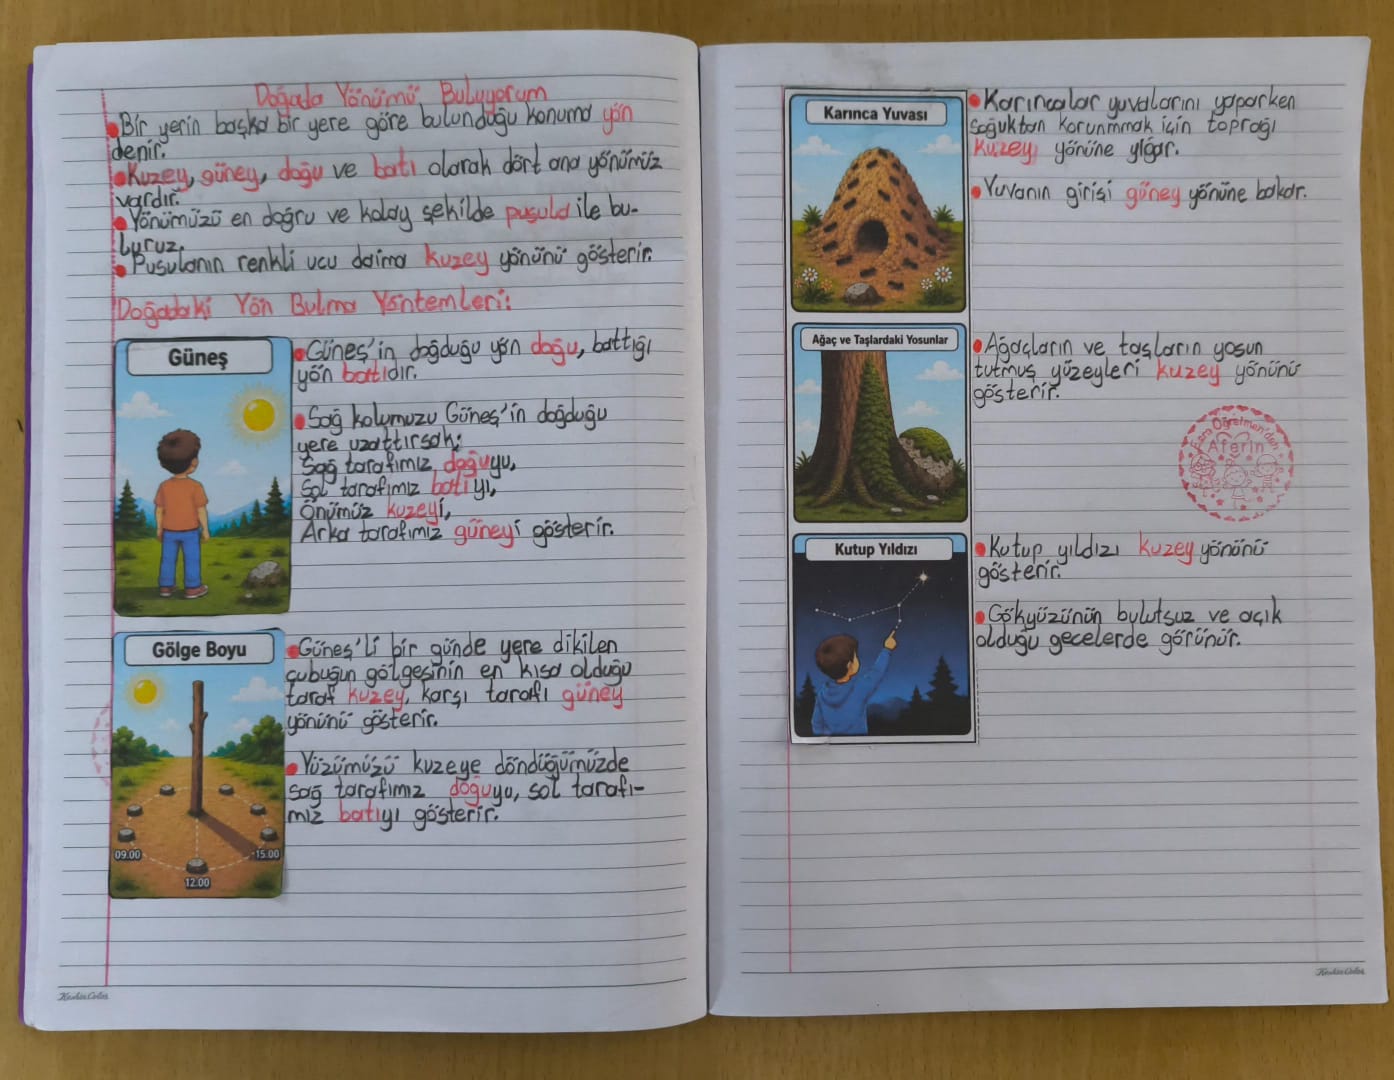 Doğada Yönümü Buluyorum
Bir yerin başka bir yere göre bulunduğu konuma yön
denir.
Kuzey, güney, doğu ve batı olarak dört ana yönümüz
vardır.
Yönümüzü en doğru ve kolay şekilde pusula ile bu-
luruz.
Pusulanın renkli ucu daima kuzey yönünü gösterir.
Doğadaki Yön Bulma Yöntemleri:
Güneş
Güneş'in doğduğu yön doğu, battığı
yön batıdır.
Sağ kolumuzu Güneş'in doğduğu
yere uzattırsak;
Sağ tarafımız doğuyu,
Sol tarafımız batıyı,
Önümüz kuzeyi,
Arka tarafımız güneyi gösterir.
Gölge Boyu
09.00
12.00
15.00
Güneş'li bir günde yere dikilen
çubuğun gölgesinin en kısa olduğu
taraf kuzey, karşı tarafı güney
yönünü gösterir.
Yüzümüzü kuzeye döndüğümüzde
sağ tarafımız doğuyu, sol tarafı-
mız batıyı gösterir.
Keskin Color
Karınca Yuvası
Karıncalar yuvalarını yaparken
soğuktan korunmmak için toprağı
kuzeyi yönüne yığar.
Yuvanın girişi güney yönüne bakar.
Ağaç ve Taşlardaki Yosunlar
Ağaçların ve taşların yosun
tutmuş yüzeyleri kuzey yönünü
gösterir.
Esra Öğretmen'den
Aferin
Kutup Yıldızı
Kutup yıldızı kuzey yönünü
gösterir.
Gökyüzünün bulutsuz ve açık
olduğu gecelerde görünür.
Keskin Color